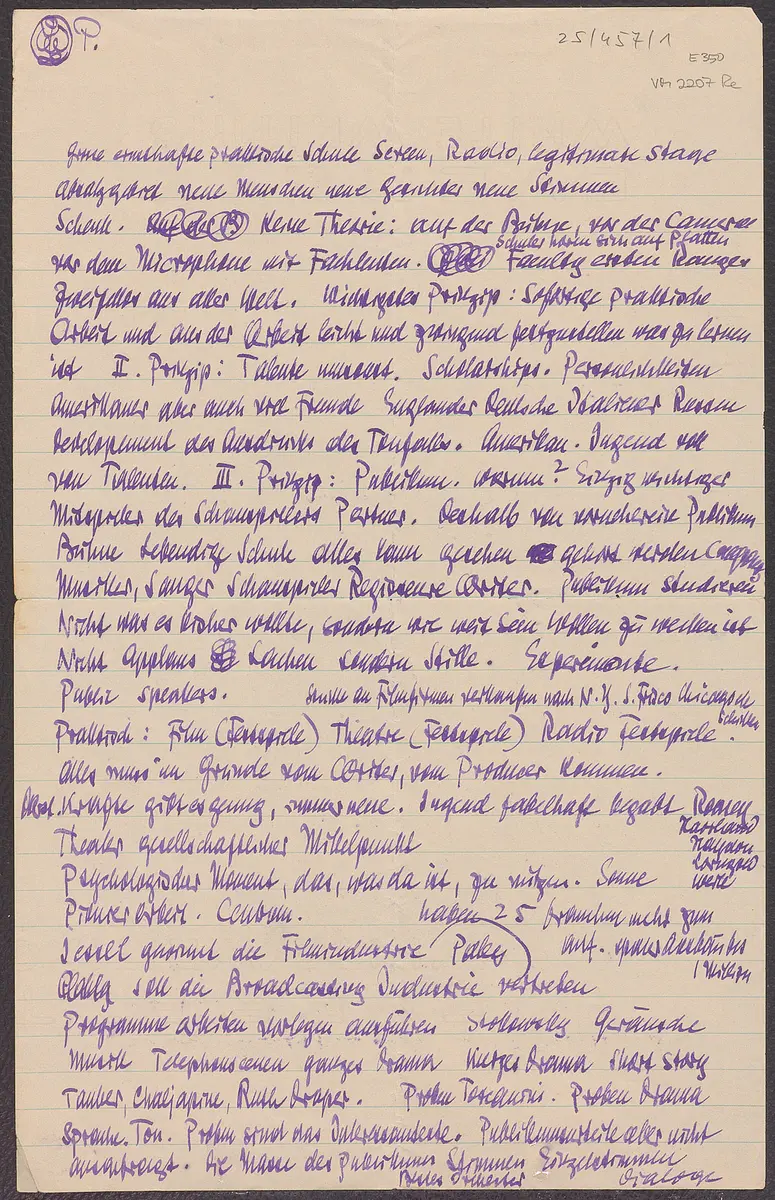 P.
25/457/1
E350
VM 2207 Re
ernsthafte praktische Schule Screen, Radio, legitimate Stage
Absatzgebiet neue Menschen neue Gesichter neue Stimmen
Schule. Keine Theorie: auf der Bühne, vor der Camera
Schüler hören sich auf Platten
vor dem Microphone mit Fachleuten. Faculty ersten Ranges
Zweifellos aus aller Welt. Wichtigstes Prinzip: Sofortige praktische
Arbeit und aus der Arbeit leicht und zwingend festzustellen was zu lernen
ist II. Prinzip: Talente umsonst. Scholarships. Persoenlichkeiten
Amerikaner aber auch viel Fremde Englander Deutsche Italiener Russen
Developement des Ausdrucks des Tonfalles. Amerikan. Jugend voll
von Talenten. III. Prinzip: Publikum. Warum? Einzig wichtiger
Mitspieler des Schauspielers Partner. Deshalb von vorneherein Publikum
Bühne Lebendige Schule alles kann gesehen gehört werden
Musiker, Sänger Schauspieler Regisseure Writer. Publikum studieren
Nicht was es bisher wollte, sondern wie weit sein Wollen zu wecken ist
Nicht Applaus Lachen sondern Stille. Experimente.
Public speakers. an Filmfirmen verkaufen nach N.Y. S. Frisco Chicago
schicken
Praktisch: Film (Festspiele) Theatre (Festspiele) Radio Festspiele.
Alles muss im Grunde vom Writer, vom Producer kommen.
Kräfte gibt es genug, immer neue. Jugend fabelhaft begabt Rooney
Theater gesellschaftlicher Mittelpunkt
Korngold
Psychologischer Moment, das, was da ist, zu nützen. Sonne
Weill
Pionierarbeit. Centrum. haben 25 brauchen mehr zum
Jessel gewinnt die Filmindustrie Paley Anf. später Ausbau bis
1 Million
soll die Broadcasting Industrie vertreten
Programme arbeiten vorlegen ausführen Stokowsky Geräusche
Musik Telephonscenen ganzes Drama kurzes Drama short story
Tauber, Chaljapine, Ruth Draper. Proben Toscanini. Proben Drama
Sprache. Ton. Proben sind das Interessanteste. Publikumsurteile aber nicht
ausgefragt. Die Masse des Publikums Stimmen Einzelstimmen
Orchester Dialoge